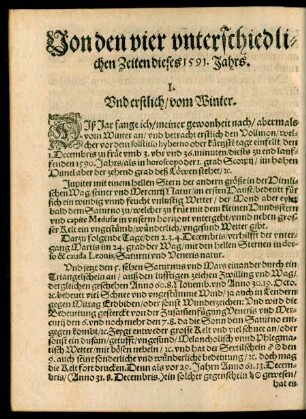 Von den vier vnterschiedli-
chen Zeiten dieses 1591. Jahrs.
I.
Vnd erstlich/ vom Winter.
DIß Jar fange ich/ meiner gewonheit nach/ abermals
vom Winter an/ vnd betracht erstlich den Vollmon/ wel-
cher vor dem solstitio hyberno oder kürtzst tage einfelt den
1. Decembris zu früe vmb 2. vhr vnd 36. minuten/ dieses zu end lauf-
fenden 1590. Jahrs/ als in horoscopo der 1. grad Scorpij/ im hohen
Himel aber der zehend grad deß Löwen stehet/ ⁊c.
Jupiter mit einem hellen Stern der andern größe in der Himli-
schen Wag/ seiner vnd Mercurij Natur/ im ersten Hauß/ bedeut für
sich ein windig vnnd feucht vnlustig Wetter/ der Mond aber eylet
bald dem Saturno zu/ welcher zu früe mit den kleinen Dunckelstern
vnd capite Medusæ in vnserm horizont vntergehet/ vnnd neben gros-
ser Kelt ein vngestümb/ wünderlich/ vngesund Wetter gibt.
Darzu folgende Tage/ den 2. 3. 4. Decembris/ verhülfft der vnter-
gang Martis im 24. grad der Wag/ mit den hellen Sternen in dor-
so & cauda Leonis/ Saturni vnd Veneris natur.
Vnd jetzt den 5. sehen Saturnus vnd Mars einander durch ein
Triangelschein an/ auß den lufftigen zeichen Zwilling vnd Wag/
dergleichen geschehen Anno 60. 8. Nouemb. vnd Anno 30. 19. Octo.
⁊c. bedeut viel Schnee vnd vngestümme Wind/ ja auch in Lendern
gegen Mittag Erdbidem/ oder sonst Wunderzeichen: Vnd wird die
Bedeutung gestercket von der Zusammenfügung Veneris vnd Mer-
curij den 6. vnd noch mehr den 7. 8. da die Sonn dem Saturno ent-
gegen kombt/ ⁊c. Zeigt entweder große Kelt vnd viel schnee an/ oder
sonst ein dufam/ getufft/ vngesund/ Melancholisch vnnd Phlegma-
tisch Wetter/ mit bösen nebeln/ ⁊c. vnd hat der Sextilschein ♂ ☿ den
9. auch seine sonderliche vnd wünderliche bedeutung/ ⁊c. doch mag
die Kelt fort drucken. Denn als vor 29. Jahrn Anno 61. 13. Decem-
bris/ (Anno 31. 8. Decembris.) ein solcher gegenschein ♄ ☉ gewesen/
hat es